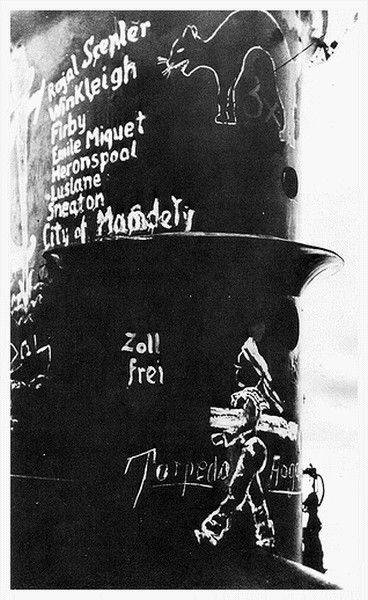 Royal Scepter
Winkleigh
Firby
Emile Miquet
Heronspool
Luslane
Sneaton
City of Mamdety
3x
Zoll
frei
Torpedo